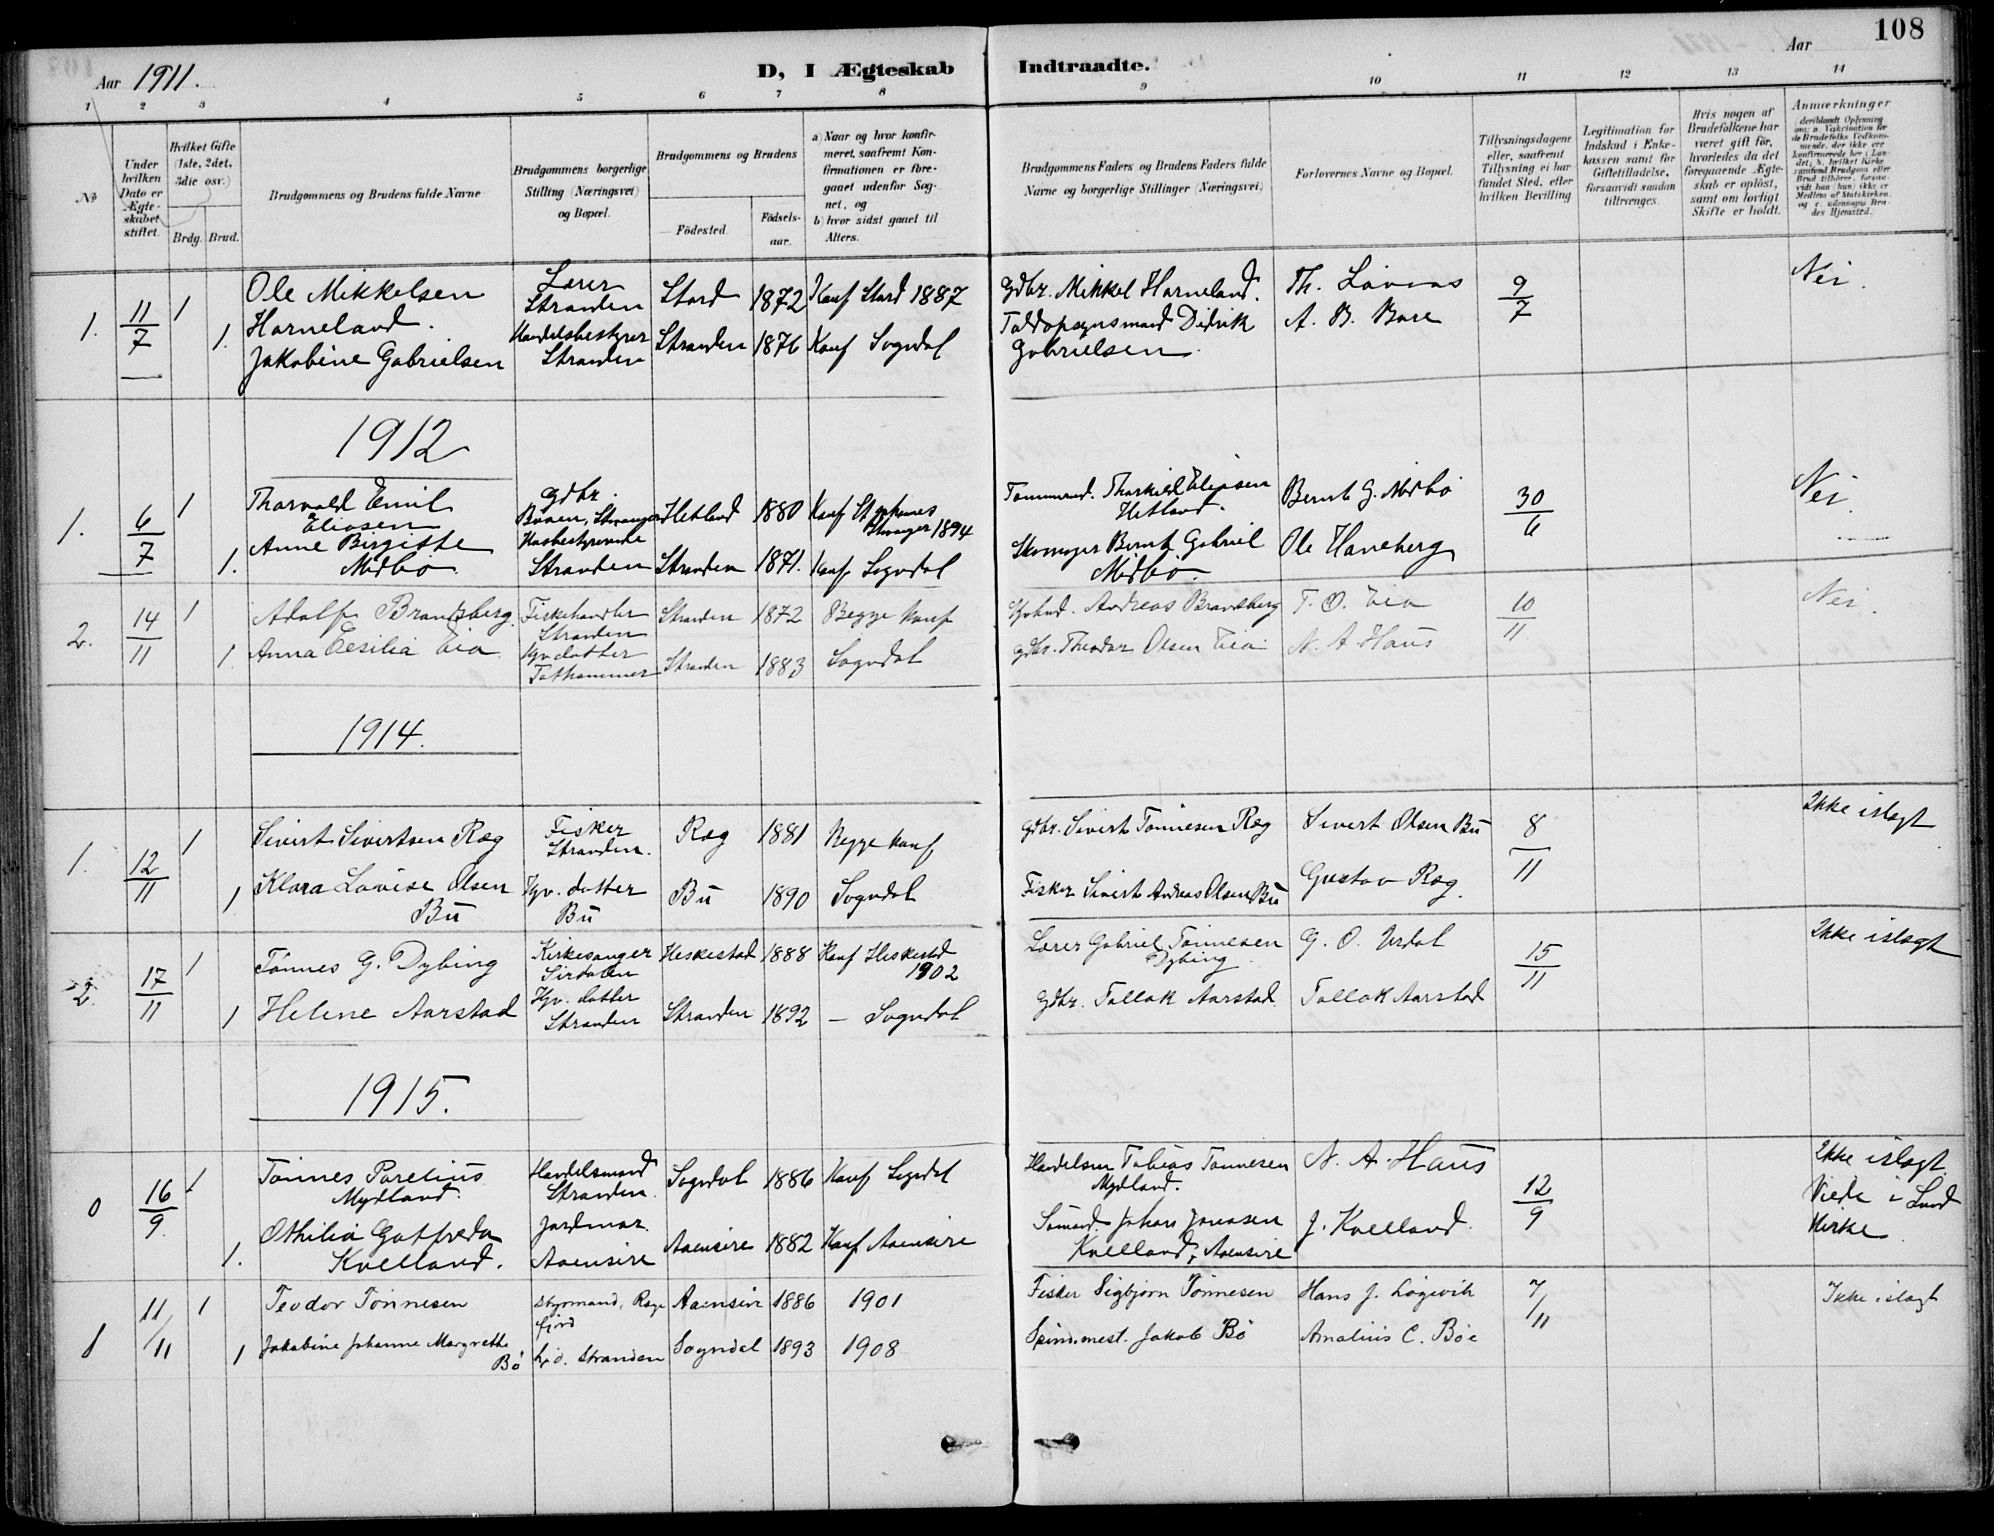 108
Aar 1911.
D, I Ægteskab Indtraadte.
Aar
1 2 3 4 5 6 7 8 9 10 11 12 13 14
No
Under hvilken Dato er Ægteskabet stiftet.
Hvilket Gifte (1ste, 2det, 3die osv.)
Brdg. Brud.
Brudgommens og Brudens fulde Navne
Brudgommens borgerlige Stilling (Næringsvei) og Bopæl.
Brudgommens og Brudens
Födested.
Födsels-aar.
a) Naar og hvor konfirmeret, saafremt Konfirmationen er foregaaet udenfor Sognet, og
b) hvor sidst gaaet til Alters.
Brudgommens Faders og Brudens Faders fulde Navne og borgerlige Stillinger (Næringsvei)
Forlovernes Navne og Bopæl.
Tillysningsdagene eller, saafremt Tillysning ei har fundet Sted, efter hvilken Bevilling
Legitimation for Indskud i Enkekassen samt for Giftetilladelse, forsaavidt saadan tiltrænges.
Hvis nogen af Brudefolkene har været gift før, hvorledes da det foregaaende Ægteskab er opløst, samt om lovligt Skifte er holdt.
Anmærkninger
1. 11/7 1 Ole Mikkelsen Horneland. Lærer Stranden Stord 1872 Konf Stord 1887 Gdbr. Mikkel Horneland. Th. Løvaas 9/7 Nei.
1. Jakobine Gabrielsen Handelsbestyrer Stranden Stranden 1876 Konf Sogndal Toldopsynsmand Didrik Gabrielsen A. B. Bore
1912
1. 6/7 1 Thorvald Emil Eliasen Gdbr. Hetland 1880 Konf St. Stavanger 1894 Thorkild Eliasen Hetland. Bernt G. Midbø 30/6 Nei.
1. Anne Birgitte Midbø Stranden Stranden 1871. Konf Sogndal Skomager Bernt Gabriel Midbø. Ole Haneberg
2. 14/11 1 Adolf Brandsberg Fiskehandler Stranden Stranden 1872 Begge konf Andreas Brandsberg T. O. Eia 10/11 Nei.
1. Anna Cesilia Eia Hgv. datter Stranden 1883 Sogndal Gdbr. Theodor Olsen Eia N. A. Haus
1914.
1. 12/11 1 Sivert Sivertsen Ræg Fisker Stranden. Ræg 1881 Begge konf Gdbr. Sivert Tønnesen Ræg Sivert Olsen Bu 8/11 Ikke islægt
1 Klara Lovise Olsen Bu Hgv. datter Bu Bu 1890 Sogndal Fisker Sivert Andreas Olsen Bu Gustav Ræg.
2. 17/11 1 Tønnes G. Dybing Kirkesanger Sirdalen Heskestad 1888 Konf Heskestad 1902 Lærer Gabriel Tønnesen Dybing G. O. Urdal 15/11 Ikke islægt
1 Helene Aarstad Hgv. datter Stranden Stranden 1892 — Sogndal Gdbr. Tollak Aarstad Tollak Aarstad
1915.
0 16/9. 1 Tønnes Parelius Mydland. Handelsmand Stranden. Sogndal 1886 Konf Sogndal Handelsm Tobias Tønnesen Mydland. N. A. Haus 12/9 Ikke islægt. Viede i Lund Kirke
1. Othilia Gotfreda Kvelland. Jordmor. Aaensire Aaensire 1882 Konf Aaensire Sømand. Johan Jonassen Kvelland, Aaensire J. Kvelland.
1 11/11 1 Teodor Tönnesen Styrmand, Rægefjord Aaensire 1886 1901 Fisker Sigbjørn Tönnesen Hans J. Løgevik 7/11 Ikke islægt
1 Jakobine Johanne Margrethe Bö Stranden Sogndal 1893 1908 Spind.mest. Jakob Bö Amalius C. Böe